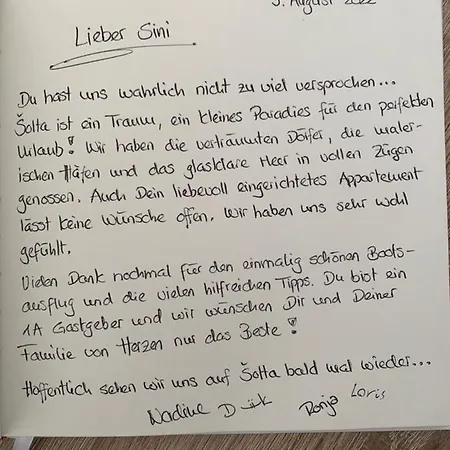 August 2022
Lieber Sini
Du hast uns wahrlich nicht zu viel versprochen...
Šolta ist ein Traum, ein kleines Paradies für den perfekten
Urlaub! Wir haben die verträumten Dörfer, die maler-
ischen Häfen und das glasklare Meer in vollen Zügen
genossen. Auch Dein liebevoll eingerichtetes Appartement
lässt keine Wünsche offen. Wir haben uns sehr wohl
gefühlt.
Vielen Dank nochmal für den einmalig schönen Boots-
ausflug und die vielen hilfreichen Tipps. Du bist ein
1A Gastgeber und wir wünschen Dir und Deiner
Familie von Herzen nur das Beste!
Hoffentlich sehen wir uns auf Šolta bald mal wieder...
Nadine Dirk Ronja Loris